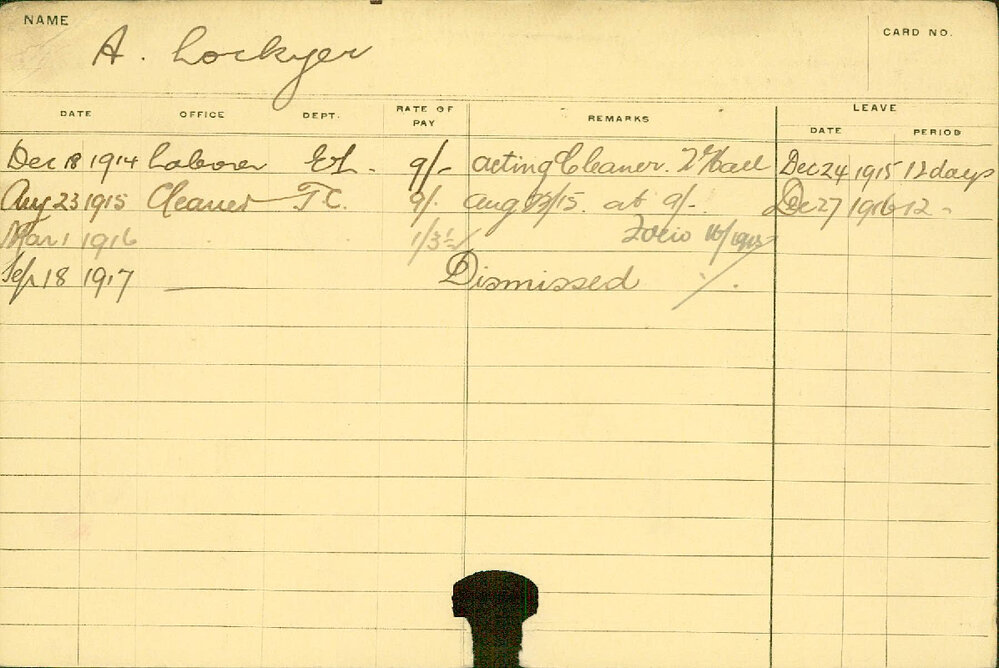 NAME
A. Lockyer
CARD NO.
DATE OFFICE DEPT. RATE OF PAY REMARKS LEAVE DATE PERIOD
Dec 18 1914 Laborer EL. 9/- acting Cleaner. T Hall Dec 24 1915 12 days
Aug 23 1915 Cleaner T.C. 9/. Aug /15. at 9/- Dec 27 1916 12 -
Mar 1 1916 1/3½ 
Sep 18 1917 Dismissed